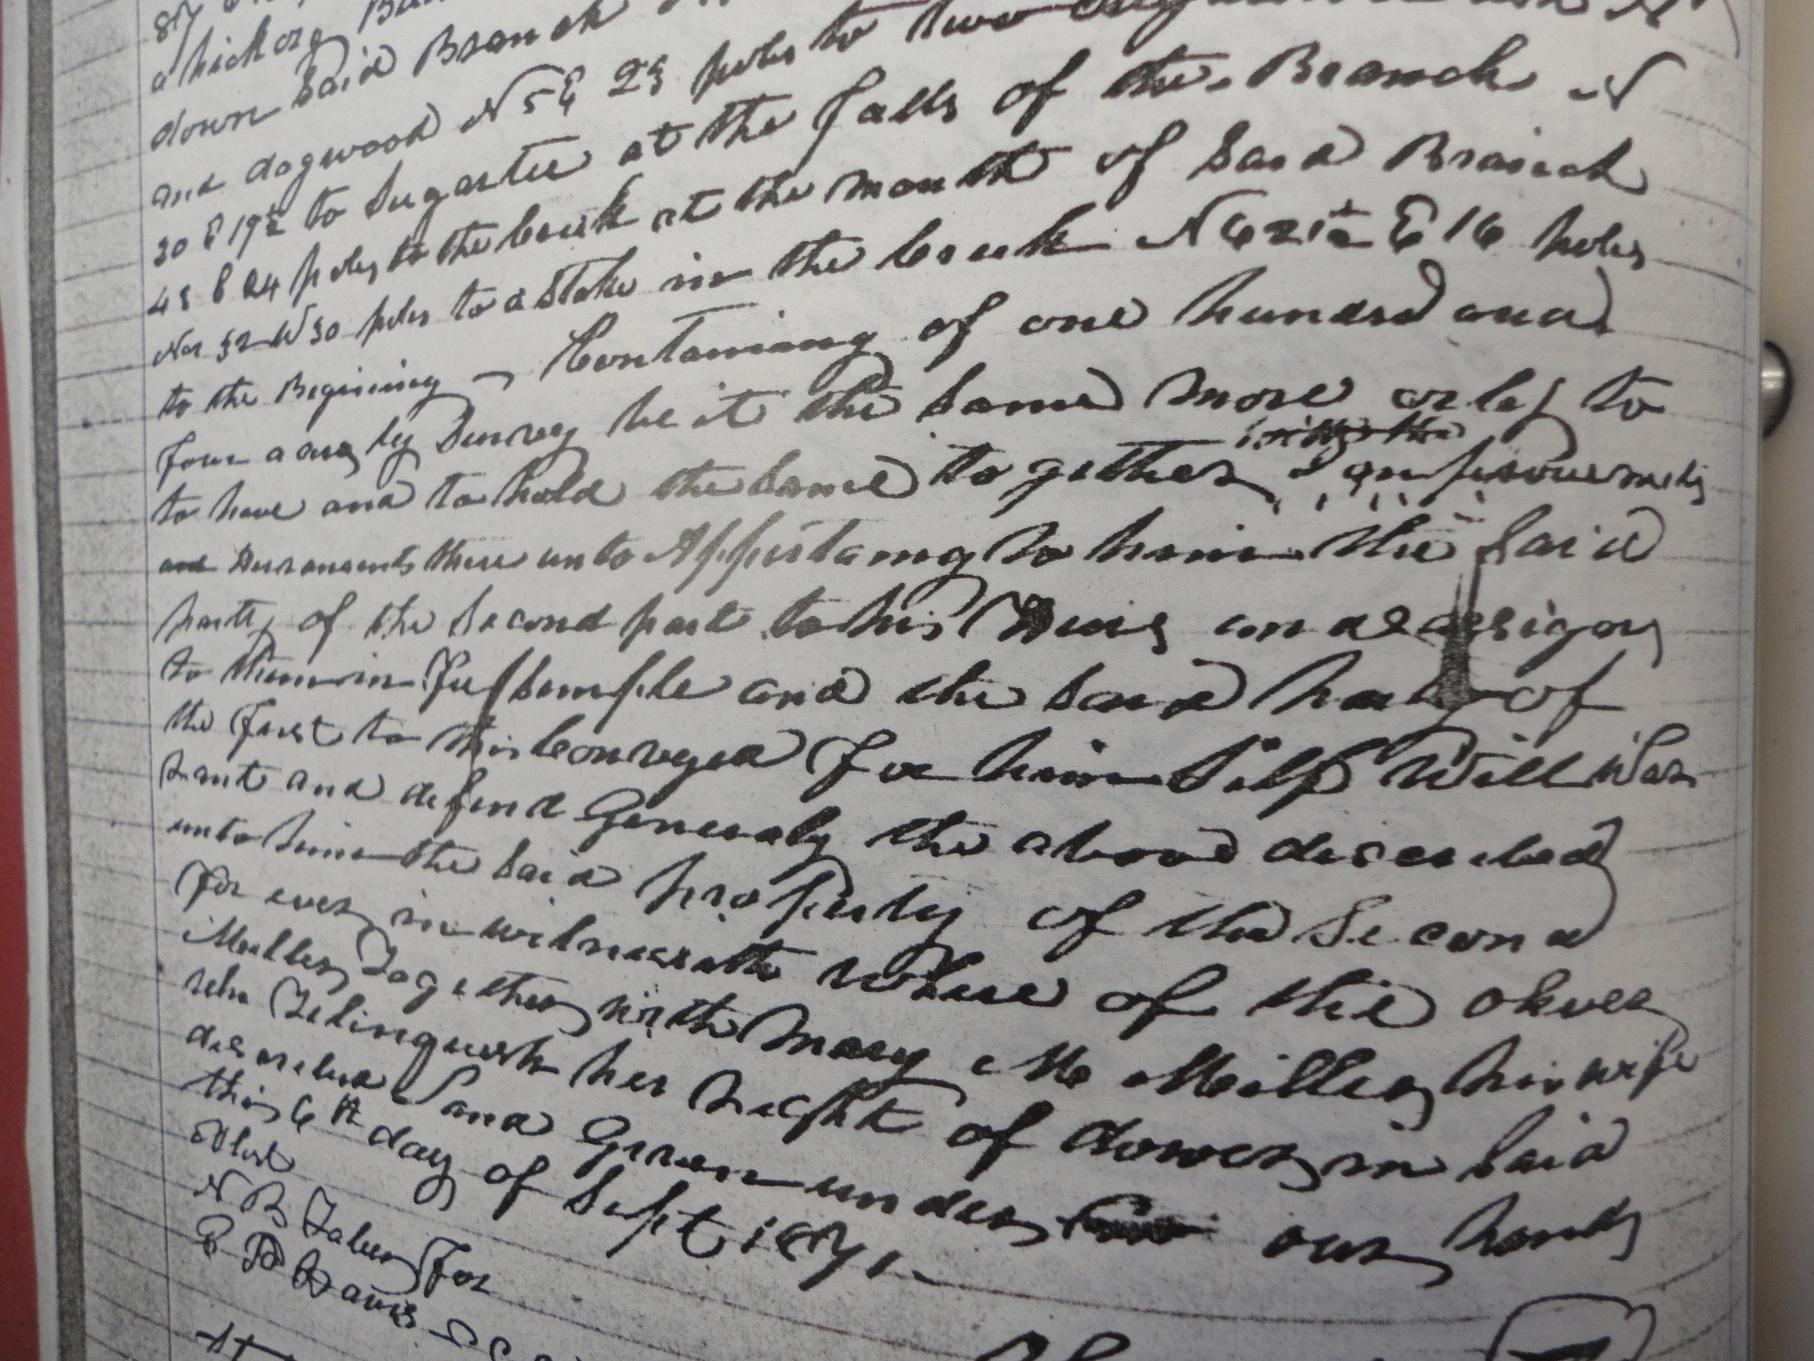 a hickory
down Said Branch
and dogwood N 5 E 23 poles to two
30 E 19½ to Sugartree at the falls of the Branch N
45 E 24 poles to the creek at the mouth of Said Branch
32 W 30 poles to a Stake in the creek N 62½ E 16 poles
to the Begining Containing of one hundred and
four acres by Survey be it the Same more or less to
to have and to hold the Same together
and thereunto Appertaing to him the Said
party of the Second part to his Heirs and assigns
to them in fee simple and the Said party of
the first to this Conveyed For him Self Will War
rant and defend Generaly the above discribed
unto him the Said property of the Second
For ever in witness
Miller Together with Mary M Miller his wife
who relinquish her right of dower in Said
discribed Land Given under our hands
this 6th day of Sept 1871
Atest
N B Taber For
Davis